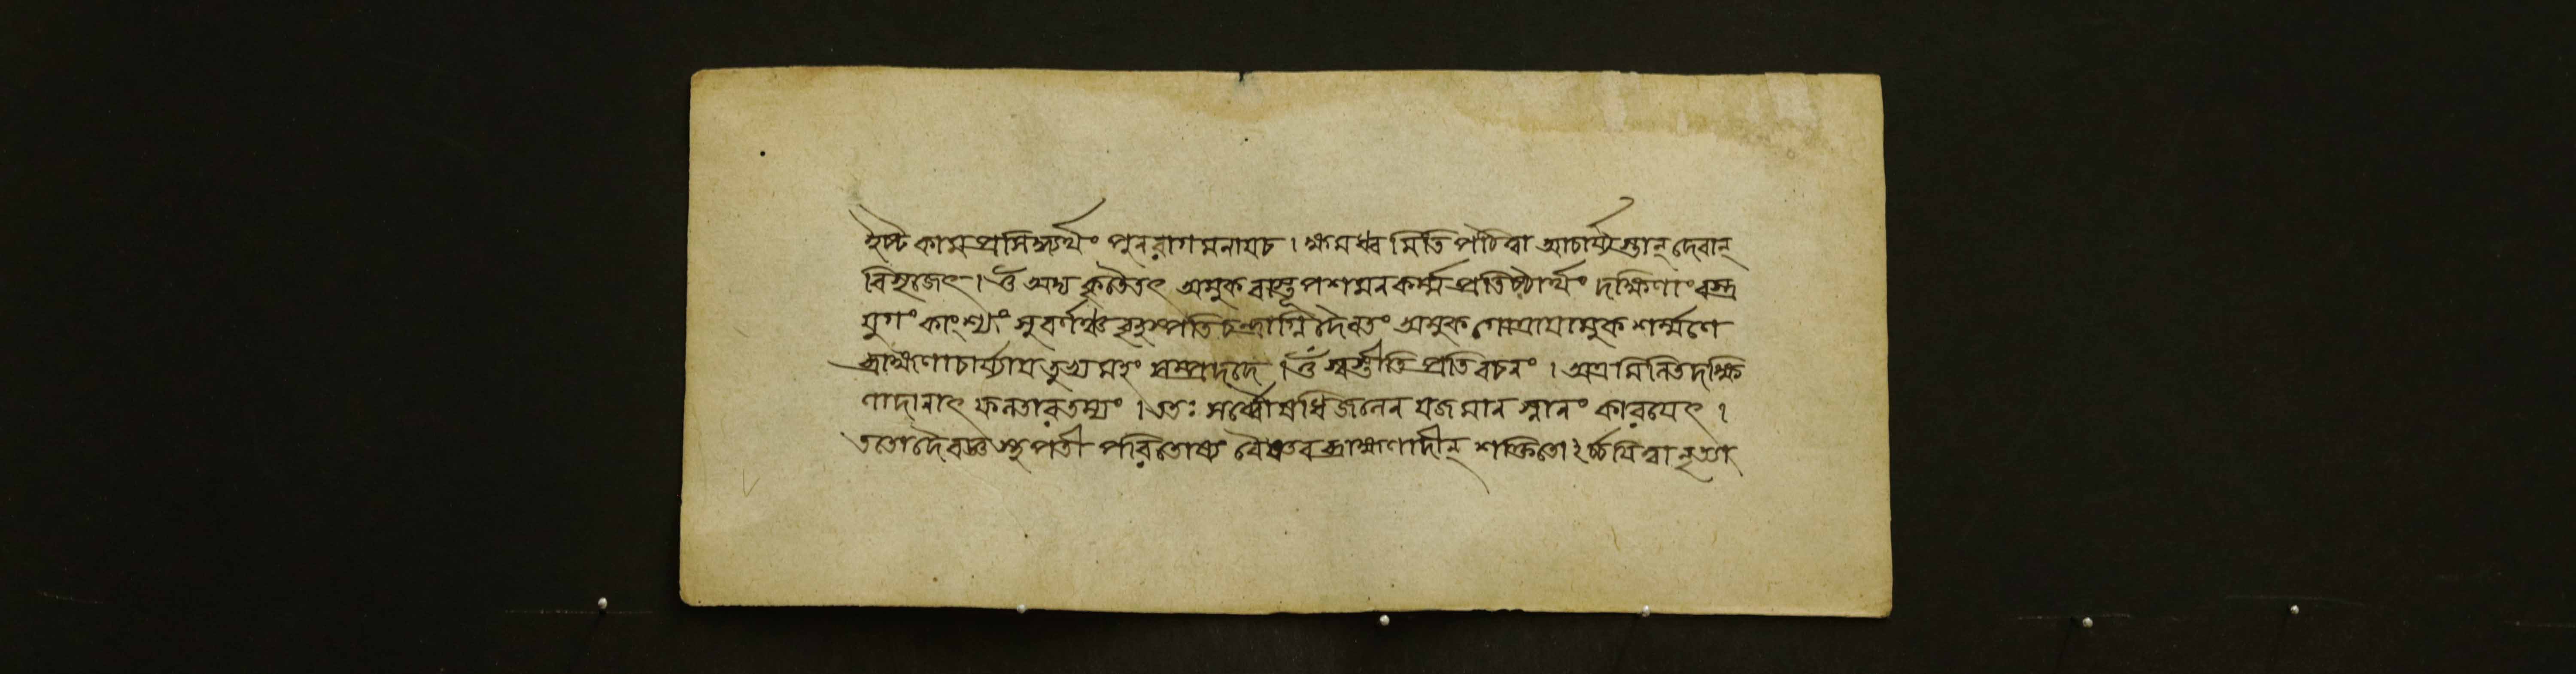 ইষ্টকামপ্রসিদ্ধ্যর্থং পুনরাগমনায়চ । ক্ষমধ্ব মিতি পঠিত্বা আচার্য্যস্তান্ দেবান্
বিসৃজেৎ । ওঁ অদ্য কৃতৈতৎ অমুক বাস্তূপশমনকর্ম্মপ্রতিষ্ঠার্থং দক্ষিণাং বস্ত্র
যুগং কাংশ্যং সুবর্ণঞ্চ বৃহস্পতিচন্দ্রাগ্নিদৈবতং অমুক গোত্রায়ামুক শর্ম্মণে
ব্রাহ্মণাচার্য্যায় তুভ্যমহং সম্প্রদদে । ওঁ স্বস্তীতি প্রতিবচনং । অত্র মিনিতদক্ষি
ণাদানাৎ ফনতারতম্যং । ততঃ সর্ব্বৌষধিজনেন যজমান স্নানং কারয়েৎ ।
ততো দৈবজ্ঞ স্থপতী পরিতোষ্য বৈষ্ণবব্রাহ্মণাদীন্ শক্তিতোঽর্চ্চয়িত্বা নৃত্য